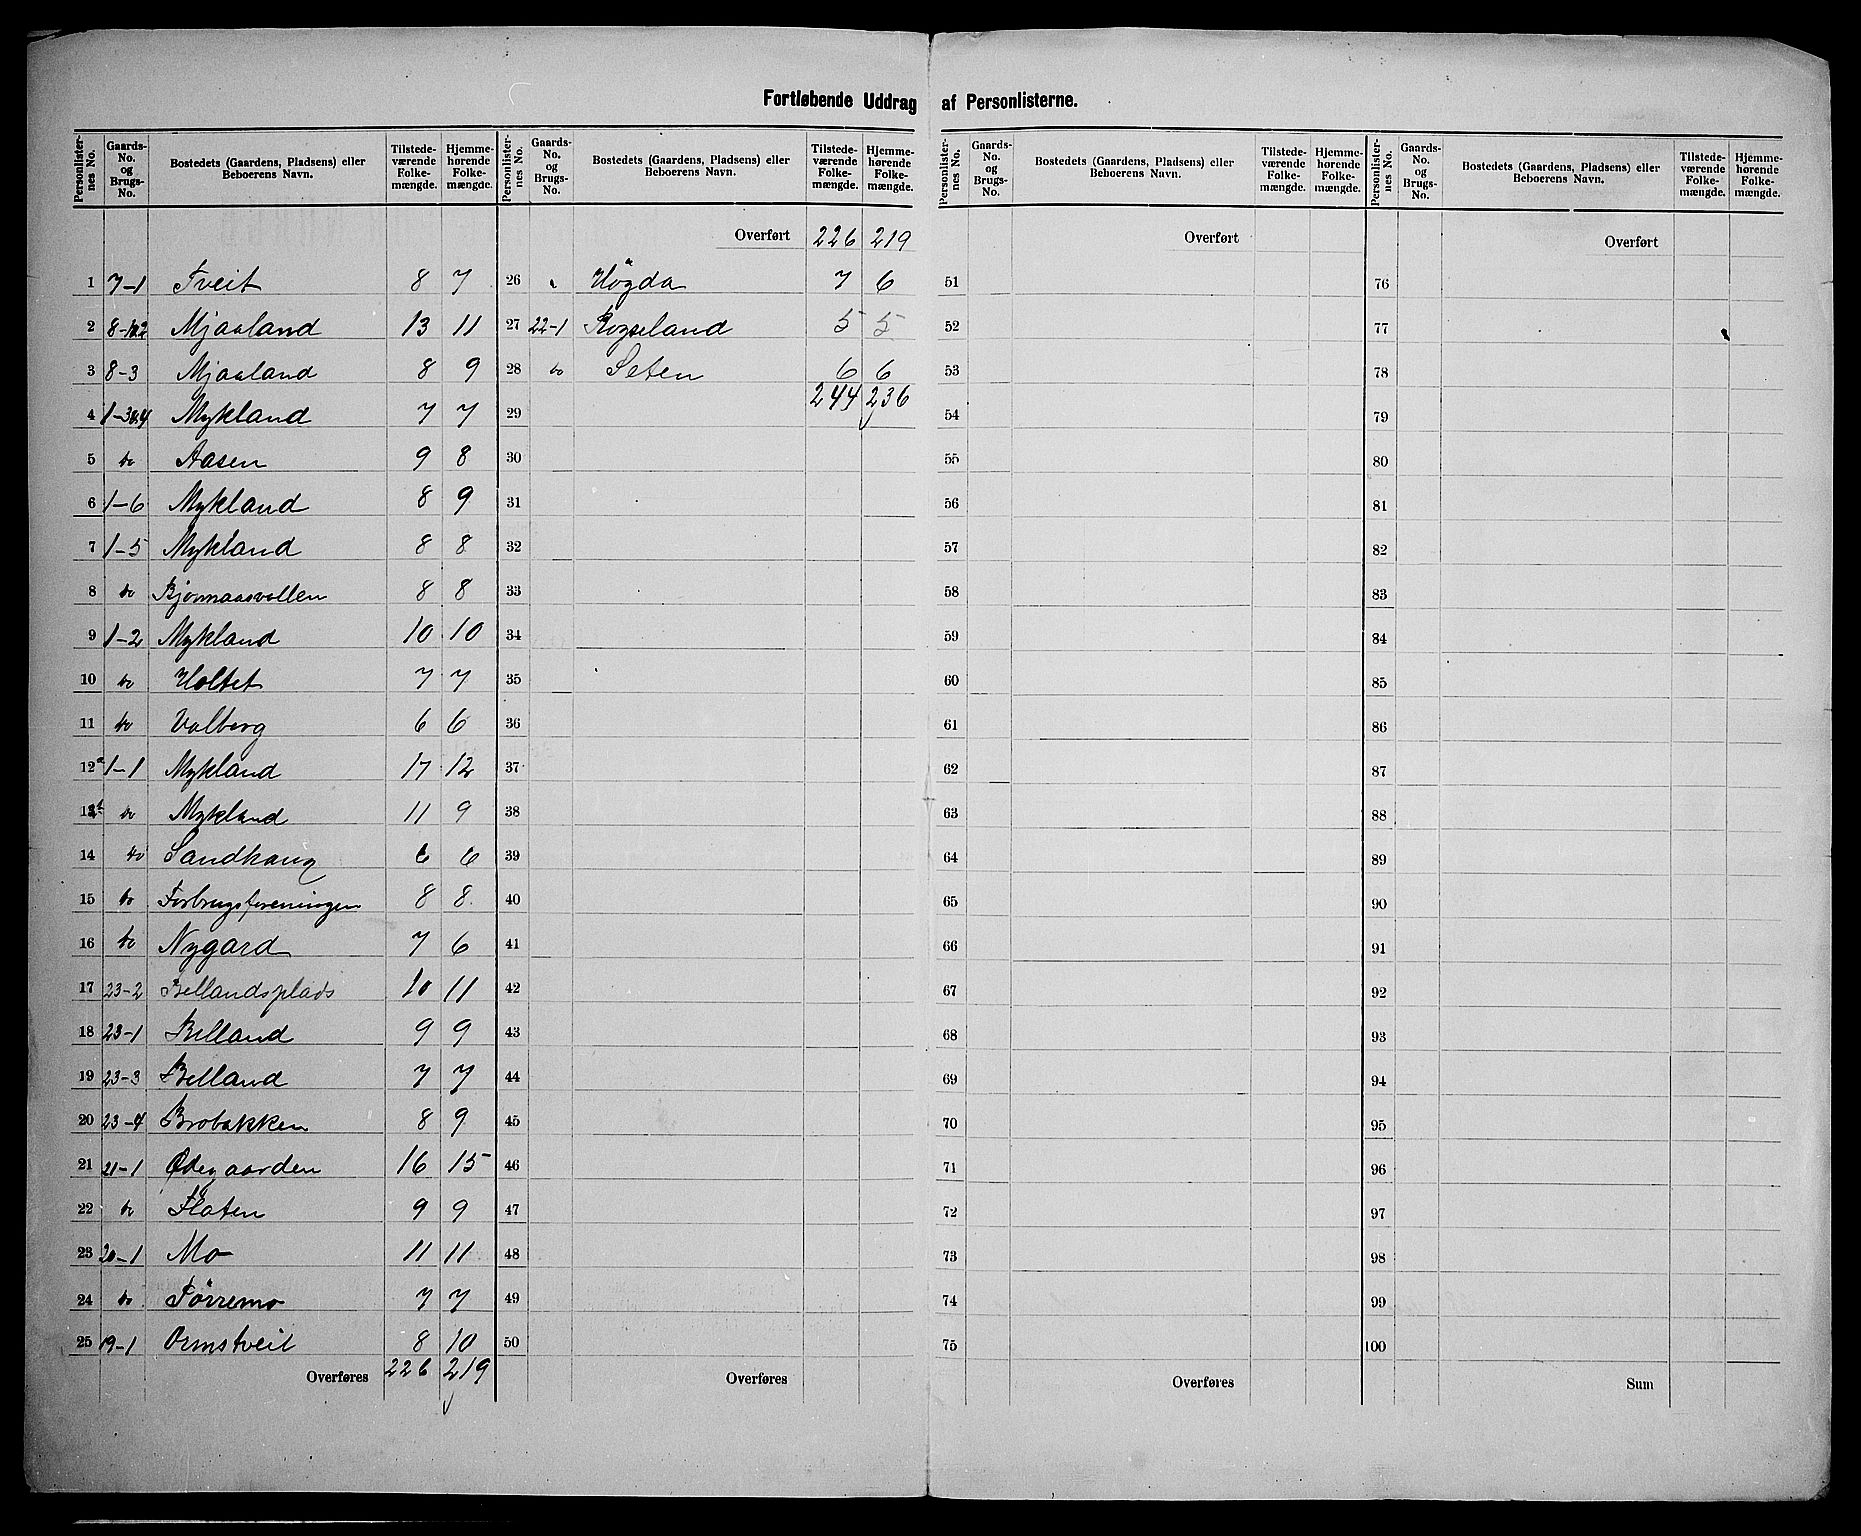 Fortløbende Uddrag af Personlisterne.
Personlister- nes No. Gaards- No. og Brugs- No. Bostedets (Gaardens, Pladsens) eller Beboerens Navn. Tilstede- værende Folke- mængde. Hjemme- hørende Folke- mængde.
Personlister- nes No. Gaards- No. og Brugs- No. Bostedets (Gaardens, Pladsens) eller Beboerens Navn. Tilstede- værende Folke- mængde. Hjemme- hørende Folke- mængde.
Personlister- nes No. Gaards- No. og Brugs- No. Bostedets (Gaardens, Pladsens) eller Beboerens Navn. Tilstede- værende Folke- mængde. Hjemme- hørende Folke- mængde.
Personlister- nes No. Gaards- No. og Brugs- No. Bostedets (Gaardens, Pladsens) eller Beboerens Navn. Tilstede- værende Folke- mængde. Hjemme- hørende Folke- mængde.
1 7-1 Tveit 8 7
2 Mjaaland 13 11
3 8-3 Mjaaland 8 9
4 Mykland 7 7
5 do Aasen 9 8
6 1-6 Mykland 8 9
7 1-5 Mykland 8 8
8 do Bjormaasvollen 8 8
9 1-2 Mykland 10 10
10 do Holtet 7 7
11 do Valberg 6 6
12a 1-1 Mykland 17 12
13 do Mykland 11 9
14 do Sandhaug 6 6
15 do Forbrugsforeningen 8 8
16 do Nygard 7 6
17 23-2 Bellandsplads 10 11
18 23-1 Belland 9 9
19 23-3 Belland 7 7
20 23-4 Brobakken 8 9
21 21-1 Ødegaarden 16 15
22 do Flaten 9 9
23 20-1 Mo 11 11
24 do Tørremo 7 7
25 19-1 Ormstveit 8 10
Overføres 226 219
Overført 226 219
26 Høgda 7 6
27 22-1 Rogseland 5 5
28 do Seten 6 6
29 244 236
30
31
32
33
34
35
36
37
38
39
40
41
42
43
44
45
46
47
48
49
50
Overføres
Overført
51
52
53
54
55
56
57
58
59
60
61
62
63
64
65
66
67
68
69
70
71
72
73
74
75
Overføres
Overført
76
77
78
79
80
81
82
83
84
85
86
87
88
89
90
91
92
93
94
95
96
97
98
99
100
Sum